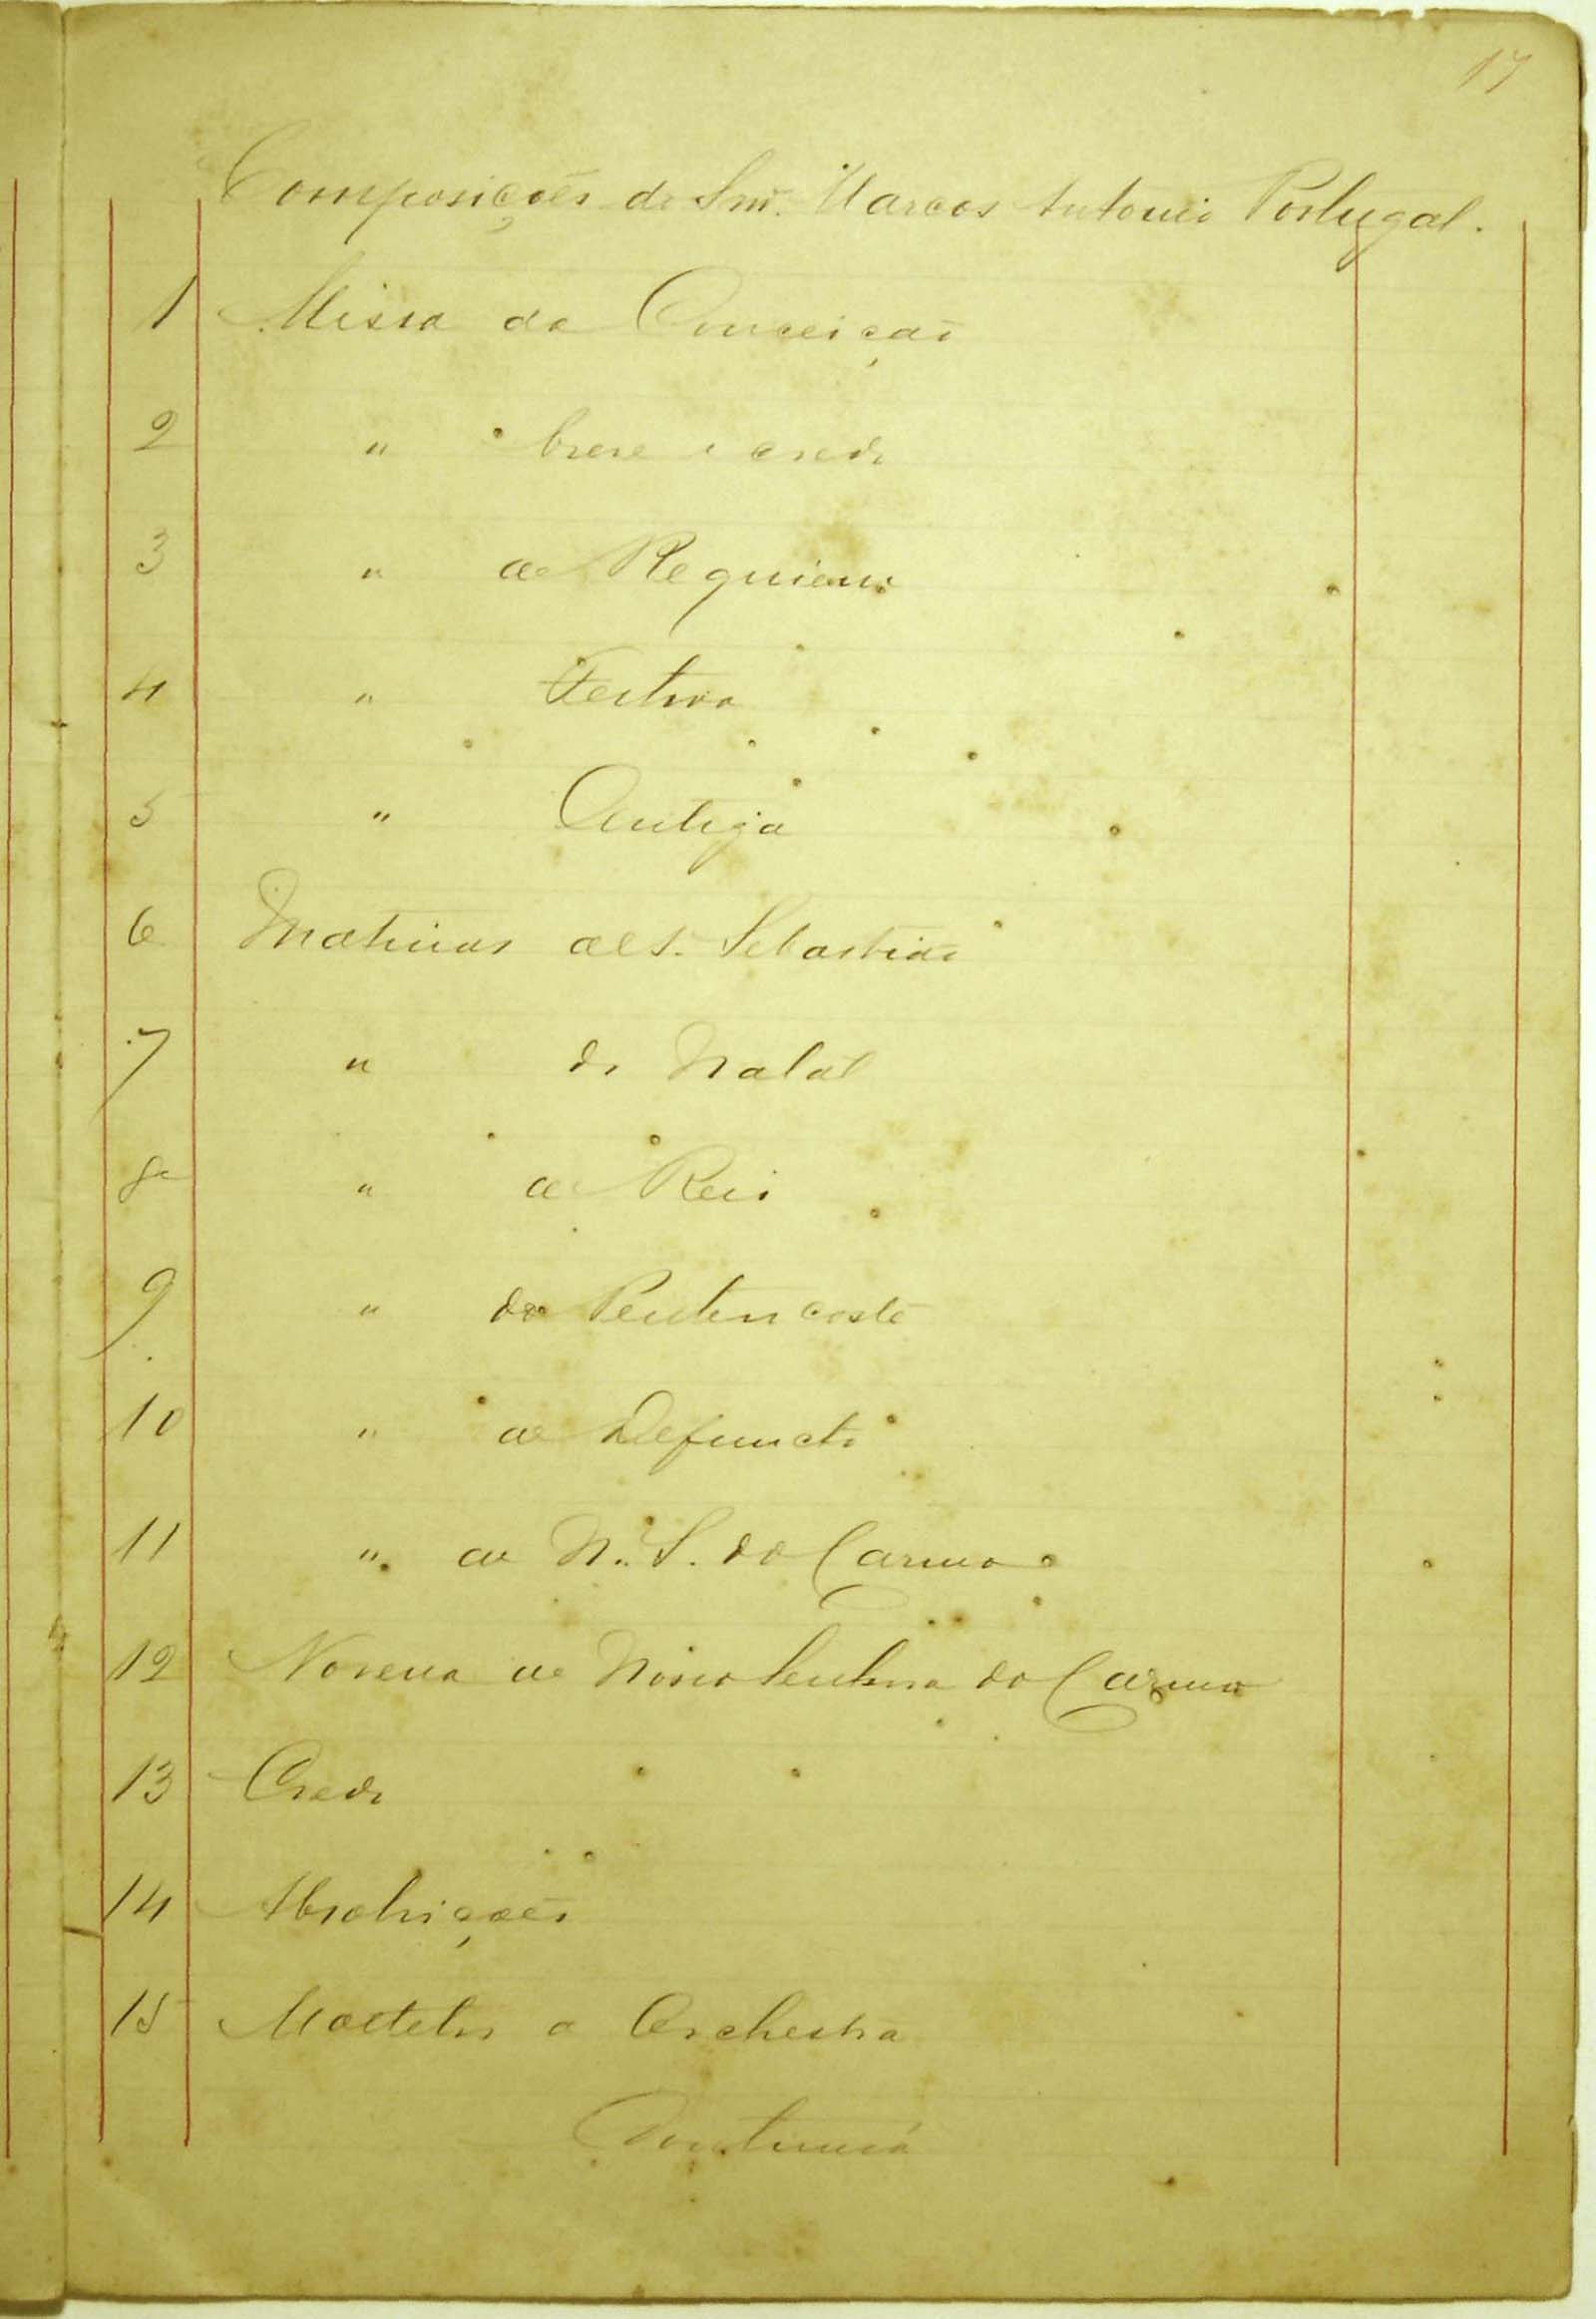 17
Composições do Snr. Marcos Antonio Portugal.
1 Missa da Conceição
2 " breve e credo
3 " de Requiem
4 " Festiva
5 " Antiga
6 Matinas de S. Sebastião
7 " do Natal
8 " de Reis
9 " do Pentencoste
10 " de Defuncto
11 " de N. S. do Carmo
12 Novena de Nossa Senhora do Carmo
13 Credo
14 Absolvições
15 Moctetos a Orchestra
Continuá